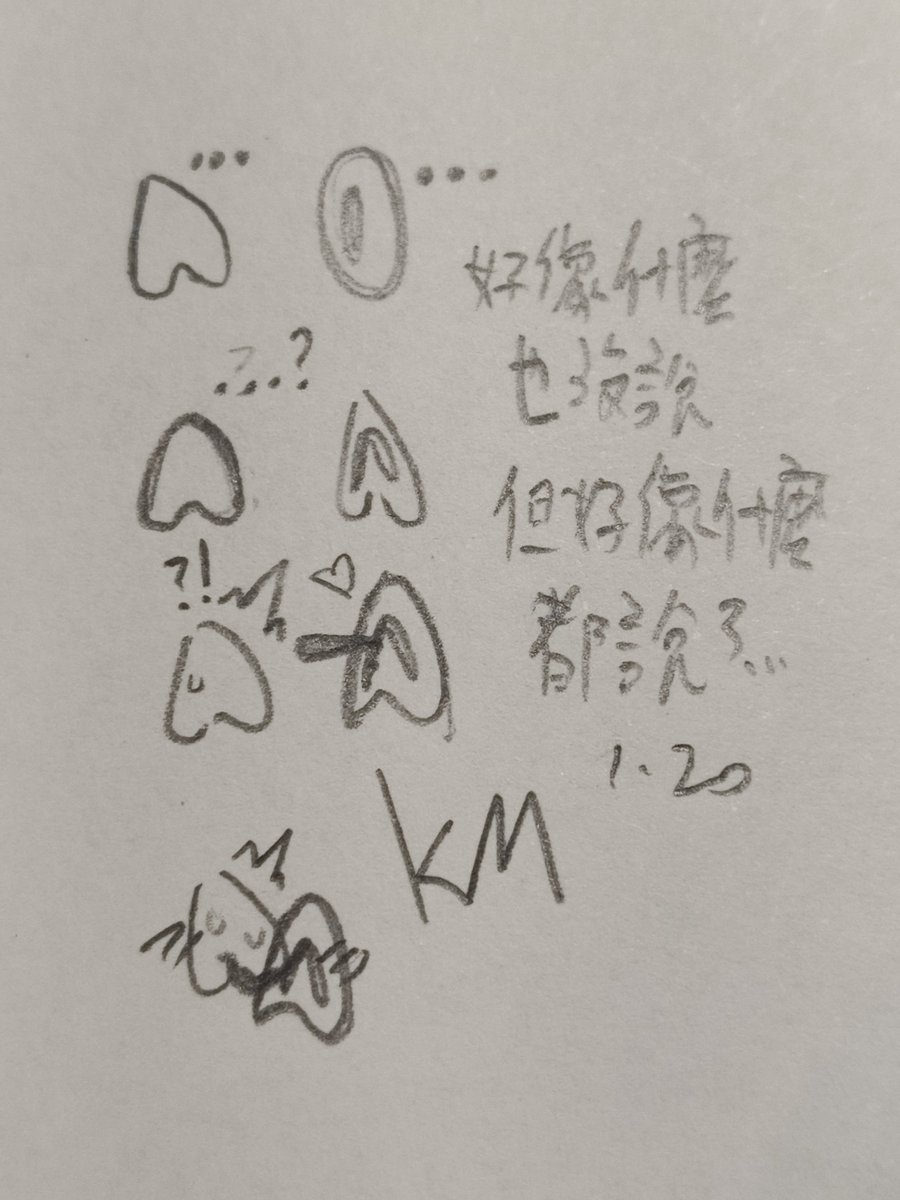 ...
...
好像什麼
也沒說
...?
但好像什麼
?!
都說了...
1.20
KM